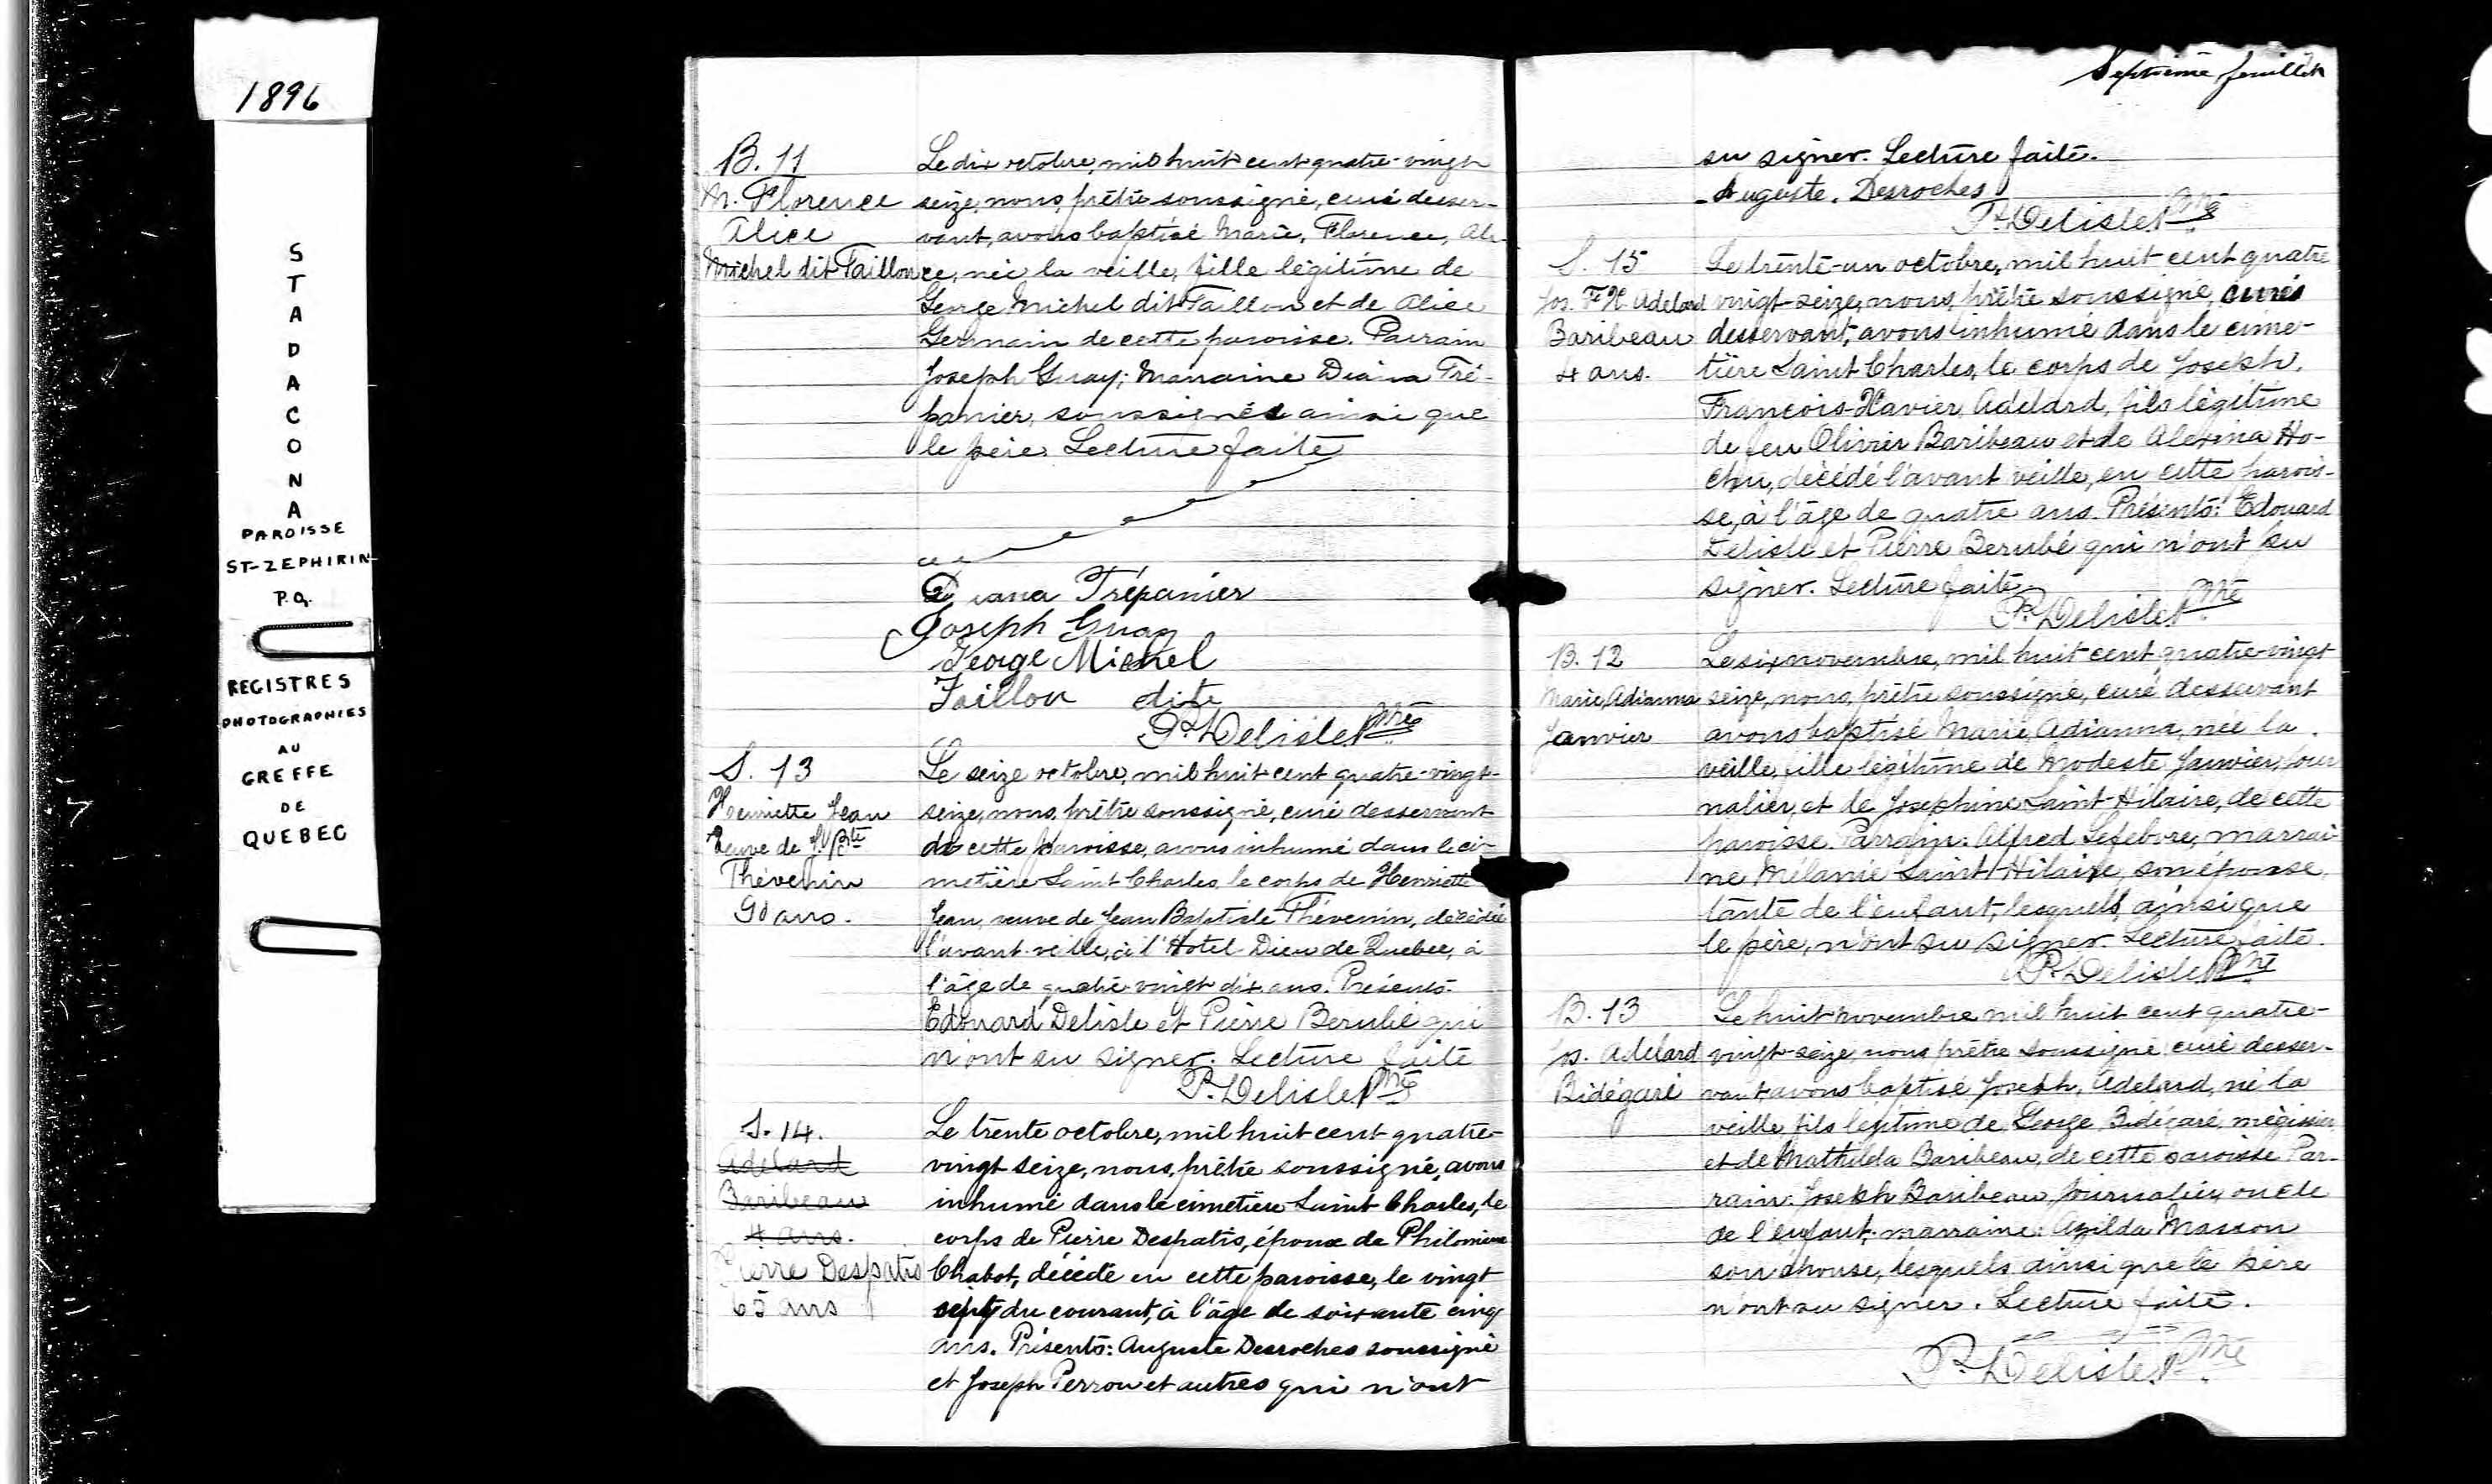 1896
S
T
A
D
A
C
O
N
A
PAROISSE
ST-ZEPHIRIN
P.Q.
REGISTRES
PHOTOGRAPHIES
AU
GREFFE
DE
QUEBEC
B. 11
M. Florence
Alice
Michel dit Taillon
Le dix octobre, mil huit cent quatre-vingt
seize, nous, prêtre soussigné, curé desser-
vant, avons baptisé Marie, Florence, Ali-
ce, née la veille, fille légitime de
George Michel dit Taillon et de Alice
Germain de cette paroisse. Parrain
Joseph Guay; Marraine Diana Tré-
panier, soussignés ainsi que
le père. Lecture faite
Diana Trépanier
Joseph Guay
George Michel
Taillon dite
P. Delisle Ptre
S. 13
Henriette Jean
Veuve de J. Bte
Thévenin
90 ans.
Le seize octobre, mil huit cent quatre-vingt-
seize, nous, prêtre soussigné, curé desservant
de cette paroisse, avons inhumé dans le ci-
metière Saint Charles, le corps de Henriette
Jean, veuve de Jean Baptiste Thévenin, décédée
l'avant-veille, à l'Hotel-Dieu de Quebec, à
l'âge de quatre-vingt dix ans. Présents:
Edouard Delisle et Pierre Berubé qui
n'ont su signer. Lecture faite
P. Delisle Ptre
S. 14.
Adelard
Baribeau
4 ans.
Pierre Despatis
65 ans
Le trente octobre, mil huit cent quatre-
vingt seize, nous, prêtre soussigné, avons
inhumé dans le cimetière Saint Charles, le
corps de Pierre Despatis, époux de Philomène
Chabot, décédé en cette paroisse, le vingt
sept du courant, à l'âge de soixante cinq
ans. Présents: Auguste Desroches soussigné
et Joseph Perron et autres qui n'ont
Septième feuillet
su signer. Lecture faite.
Auguste. Desroches
P. Delisle Ptre
S. 15
Jos. F. X. Adelard
Baribeau
4 ans.
Le trente-un octobre, mil huit cent quatre
vingt-seize, nous, prêtre soussigné, curé
desservant, avons inhumé dans le cime-
tière Saint Charles, le corps de Joseph,
François-Xavier, Adelard, fils légitime
de feu Olivier Baribeau et de Alexina Ho-
chu, décédé l'avant veille, en cette parois-
se, à l'âge de quatre ans. Présents: Edouard
Delisle et Pierre Berubé qui n'ont su
signer. Lecture faite.
P. Delisle Ptre
B. 12
Marie, Adianna
Janvier
Le six novembre, mil huit cent quatre-vingt
seize, nous, prêtre soussigné, curé desservant
avons baptisé Marie, Adianna, née la
veille, fille légitime de Modeste Janvier, jour
nalier, et de Josephine Saint-Hilaire, de cette
paroisse. Parrain: Alfred Lefebvre, marrai-
ne Mélanie Saint Hilaire, son épouse,
tante de l'enfant, lesquels, ainsi que
le père, n'ont su signer. Lecture faite.
P. Delisle Ptre
B. 13
Jos. Adelard
Bidégaré
Le huit novembre mil huit cent quatre-
vingt-seize, nous prêtre soussigné curé desser-
vant, avons baptisé Joseph, Adelard, né la
veille fils légitime de George Bidégaré, mégissier
et de Mathilda Baribeau, de cette paroisse Par-
rain: Joseph Baribeau, journalier, oncle
de l'enfant; marraine: Azilda Masson
son épouse, lesquels ainsi que le père
n'ont su signer. Lecture faite.
P. Delisle Ptre